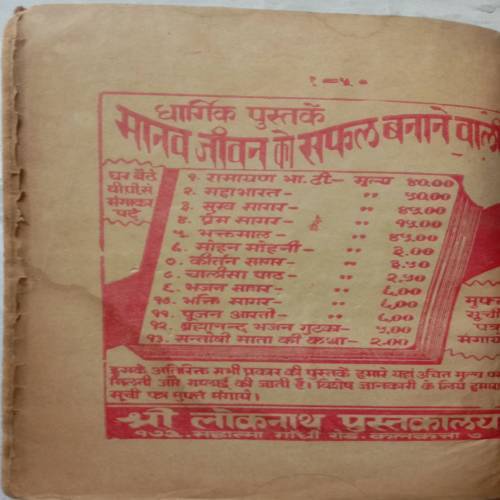 १-५०
धार्मिक पुस्तकें
मानव जीवन को सफल बनाने वाली
घर बैठे
वी.पी.से
मंगाकर
पढ़ें
१. रामायण भा. टी.- मूल्य ४०.००
२. महाभारत- " ५०.००
३. सुख सागर- " ४५.००
४. प्रेम सागर- " १५.००
५. भक्तमाल- " ४५.००
६. मोहन मोहनी- " ३.००
७. कीर्तन सागर- " ३.५०
८. चालीसा पाठ- " २.५०
९. भजन सागर- " ६.००
१०. भक्ति सागर- " ६.००
११. पूजन आरती- " ६.००
१२. ब्रह्मानन्द भजन गुटका- ५.००
१३. सन्तोषी माता की कथा- २.००
मुफ्त
सूची
मंगायें
इसके अतिरिक्त सभी प्रकार की पुस्तकें हमारे यहां उचित मूल्य पर
मिलती और सप्लाई की जाती हैं। विशेष जानकारी के लिये हमारा
सूची पत्र मुफ्त मंगायें।
श्री लोकनाथ पुस्तकालय
१७३, महात्मा गांधी रोड, कलकत्ता ७